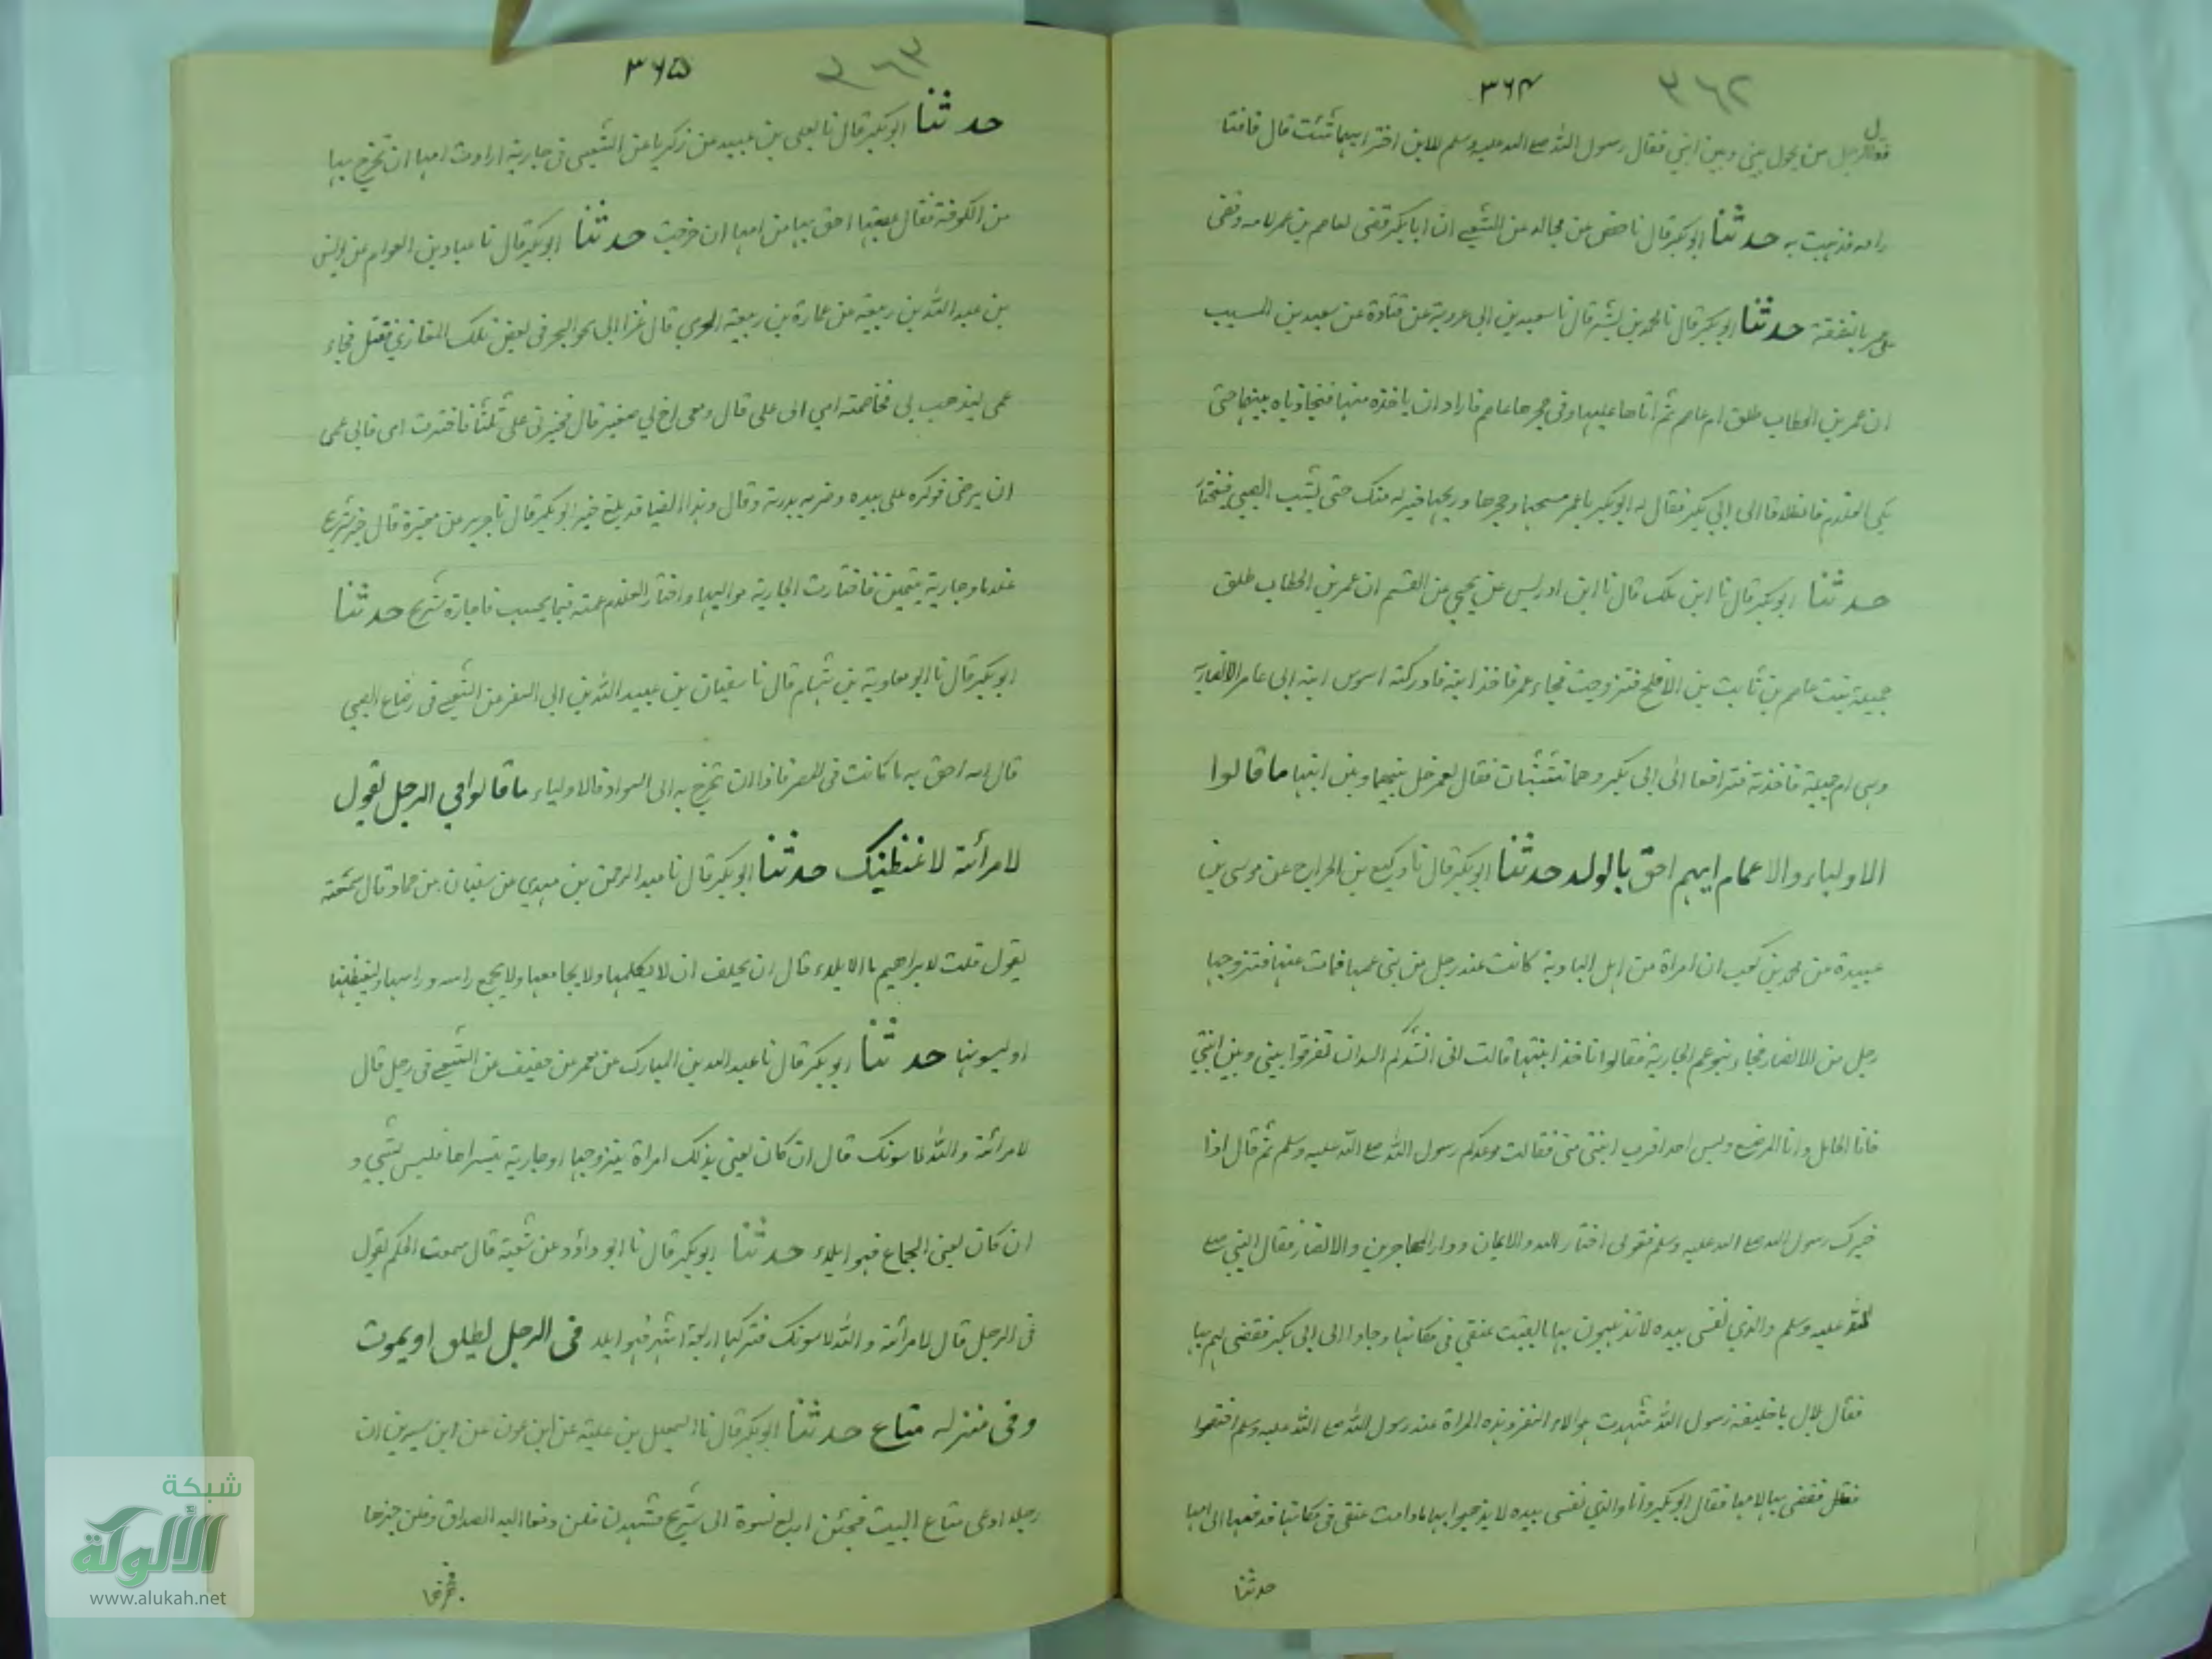 ٣٦٢
٣٦٤
فقال الرجل من يحول بيني وبين ابني فقال رسول الله صلى الله عليه وسلم للابن اختر ايهما شئت قال فاختا
ر امه فذهبت به حدثنا ابو بكر قال نا حفص عن مجالد عن الشعبي ان ابا بكر قضى لعاصم بن عمر لامه وقضى
على عمر بالنفقة حدثنا ابو بكر قال نا محمد بن بشر قال نا سعيد بن ابي عروبة عن قتادة عن سعيد بن المسيب
ان عمر بن الخطاب طلق ام عاصم ثم اتاها عليها وفي حجرها عاصم فاراد ان ياخذه منها فتجاذباه بينهما حتى
بكى الغلام فانطلقا الى ابي بكر فقال له ابو بكر يا عمر مسحها وحجرها وريحها خير له منك حتى يشب الصبي فيختار
حدثنا ابو بكر قال نا ابن ادريس عن يحيى عن القسم ان عمر بن الخطاب طلق
جميلة بنت عاصم بن ثابت بن الاقلح فتزوجت فجاء عمر فاخذ ابنه فادركته اسوس ابنة ابي عامر الانصارية
وهي ام جميلة فاخذته فترافعا الى ابي بكر وهما متشبثان فقال لعمر خل بينهما وبين ابنها ما قالوا
الاولياء والاعمام ايهم احق بالولد حدثنا ابو بكر قال نا وكيع بن الجراح عن موسى بن
عبيدة عن محمد بن كعب ان امراة من اهل البادية كانت عند رجل من بني عمها فمات عنها فتزوجها
رجل من الانصار فجاء بنو عم الجارية فقالوا انا اخذ ابنتها قالت اني انشدكم الله ان تفرقوا بيني وبين ابنتي
فانا الحامل وانا المرضع وليس احد اقرب ابنتي مني فقالت موعدكم رسول الله صلى الله عليه وسلم ثم قال اذا
خيرك رسول الله صلى الله عليه وسلم فقولي اختار الله والايمان ودار المهاجرين والانصار فقال النبي صلى
الله عليه وسلم والذي نفسي بيده لا تذهبون بها ما بقيت عنقي في مكانها وجاوا الى ابي بكر فقضى لهم بها
فقال بلال يا خليفة رسول الله شهدت هولاء النفر وهذه المراة عند رسول الله صلى الله عليه وسلم اختصموا
فقضى بها لامها فقال ابو بكر وانا والذي نفسي بيده لا يذهبوا بها ما دامت عنقي في مكانها فدفعها الى امها
حدثنا
٣٦٣
٣٦٥
حدثنا ابو بكر قال نا يعلى بن عبيد عن زكريا عن الشعبي في جارية ارادت امها ان تخرج بها
من الكوفة فقال عصبتها احق بها من امها ان خرجت حدثنا ابو بكر قال نا عباد بن العوام عن يونس
بن عبد الله بن ربيعة عن عمارة بن ربيعة الجرمي قال غزا ابي نحو البحر في بعض تلك المغازي فقتل فجاء
عمي ليذهب بي فخاصمته امي الى علي قال ومعي اخ لي صغير قال فخيرني علي ثلثا فاخترت امي فابى عمي
ان يرضى فوكزه علي بيده وضربه بدرته وقال وهذا ايضا قد بلغ خير ابو بكر قال نا جرير عن مغيرة قال خير شريح
غلاما وجارية يتيمين فاختارت الجارية مواليها واختار الغلام عمته فيما يحسب فاجازه شريح حدثنا
ابو بكر قال نا ابو معاوية بن هشام قال نا سفيان بن عبيد الله بن ابي السفر عن الشعبي في رضاع الصبي
قال امه احق به ما كانت في المصر فاذا ان تخرج به الى السواد فالاولياء ما قالوا في الرجل يقول
لامرأته لاغيظنك حدثنا ابو بكر قال نا عبد الرحمن بن مهدي عن سفيان عن حماد قال سمعته
يقول قلت لابراهيم ما الايلاء قال ان يحلف ان لا يكلمها ولا يجامعها ولا يجمع راسه وراسها او ليغيظنها
او ليسونها حدثنا ابو بكر قال نا عبد الله بن المبارك عن معمر عن خصيف عن الشعبي في رجل قال
لامرأته والله لاسونك قال ان كان يعني بذلك امراة يتزوجها او جارية يتسراها فليس بشيء و
ان كان يعني الجماع فهو ايلاء حدثنا ابو بكر قال نا ابو داؤد عن شعبة قال سمعت الحكم يقول
في الرجل قال لامرأته والله لاسونك فتركها اربعة اشهر فهو ايلاء في الرجل يطلق او يموت
وفي منزله متاع حدثنا ابو بكر قال نا اسمعيل بن علية عن ابن عون عن ابن سيرين ان
رجلا ادعى متاع البيت فجئن اربع نسوة الى شريح فشهدن فقلن دفعنا اليه الصداق وقلن جهزها
فجهزها
شبكة
الألوكة
www.alukah.net